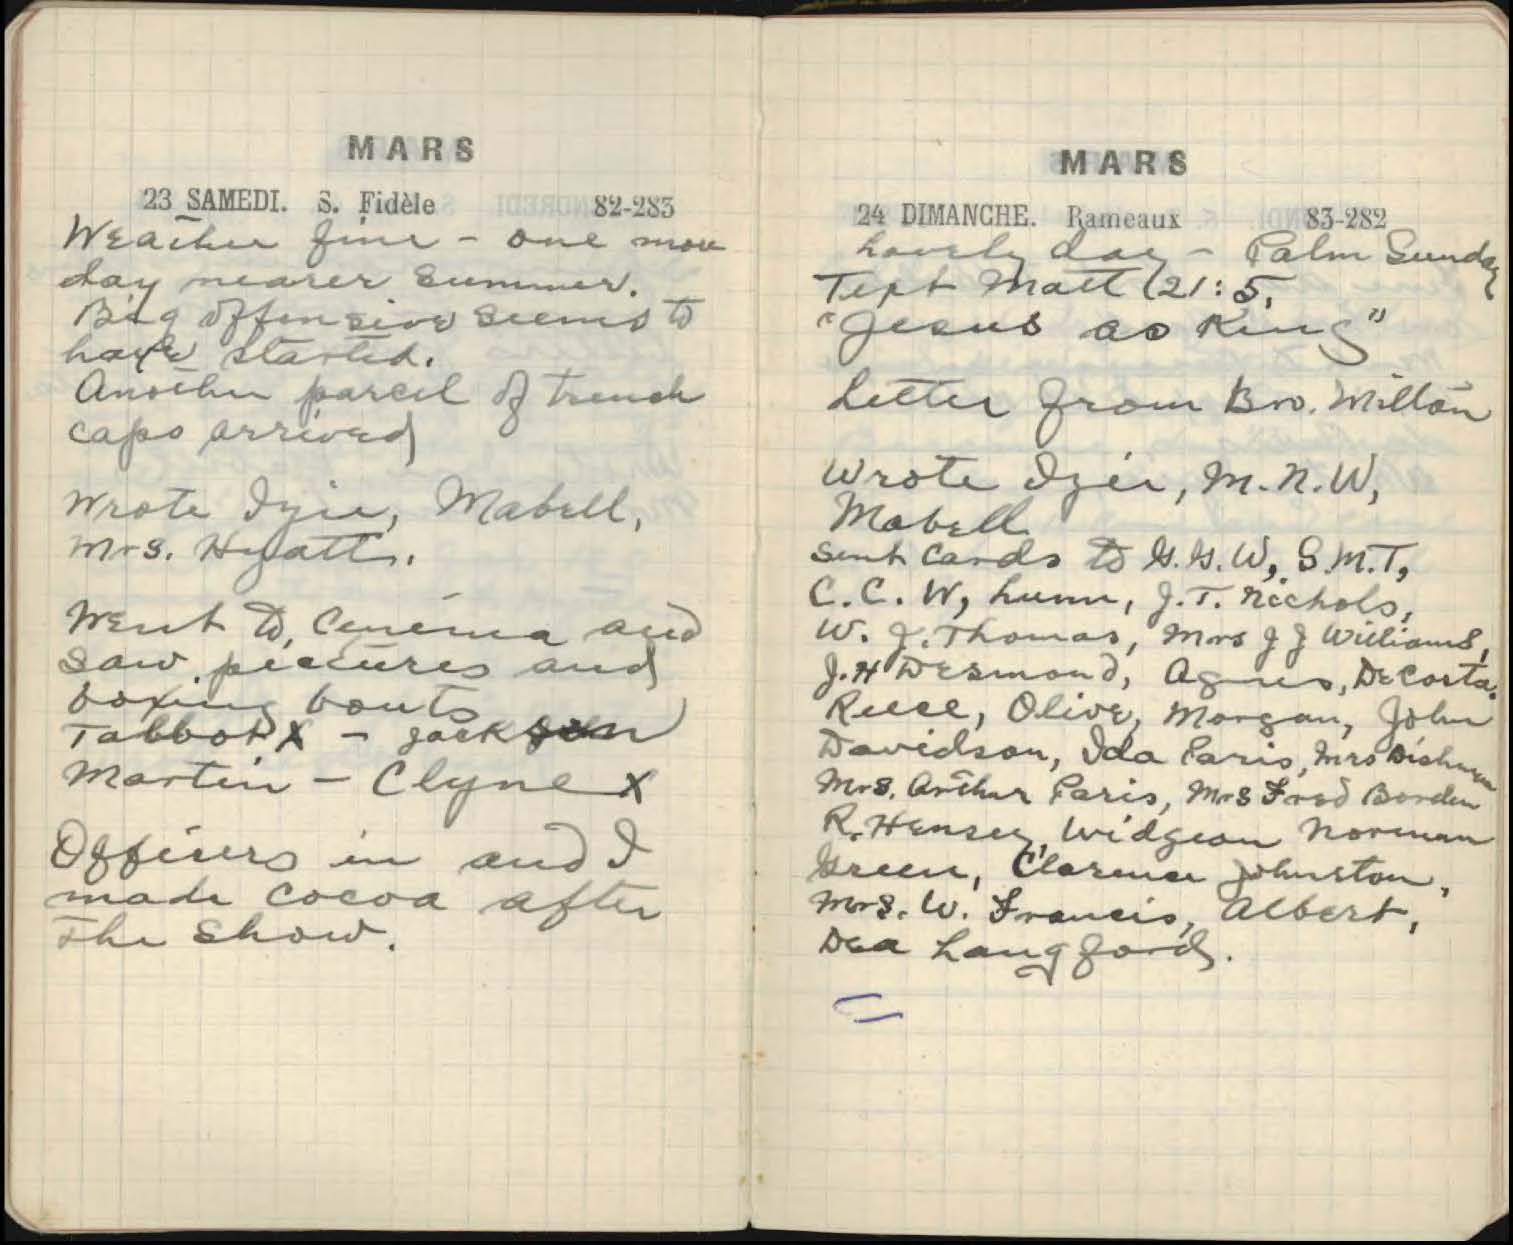 MARS
23 SAMEDI. S. Fidèle 82-283
Weather fine - one more
day nearer summer.
Big offensive seems to
have started.
Another parcel of trench
caps arrived
Wrote Izie, Mabell,
Mrs. Hyatt.
Went to Cenema and
saw pictures and
boxing bouts
Talbot X - Jackson
Martin - Clyne X
Officers in and I
made cocoa after
The show.
MARS
24 DIMANCHE. Rameaux 83-282
Lovely day - Palm Sunday
Text Matt 21:5.
"Jesus as King"
Letter from Bro. Milton
Wrote Izie, M.N.W,
Mabell
sent cards to G.G.W, S.M.T,
C.C.W, Lunn, J.T. Nichols,
W. J. Thomas, Mrs J J Williams,
J.H Desmond, Agnes, DeCosta.
Reece, Olive, Morgan, John
Davidson, Ida Paris, Mrs
Mrs. Arthur Paris, Mrs Fred Borden
R. Hensey, Widgeon Norman
Green, Clarence Johnston,
Mrs. W. Francis, Albert,
Dea Langford.